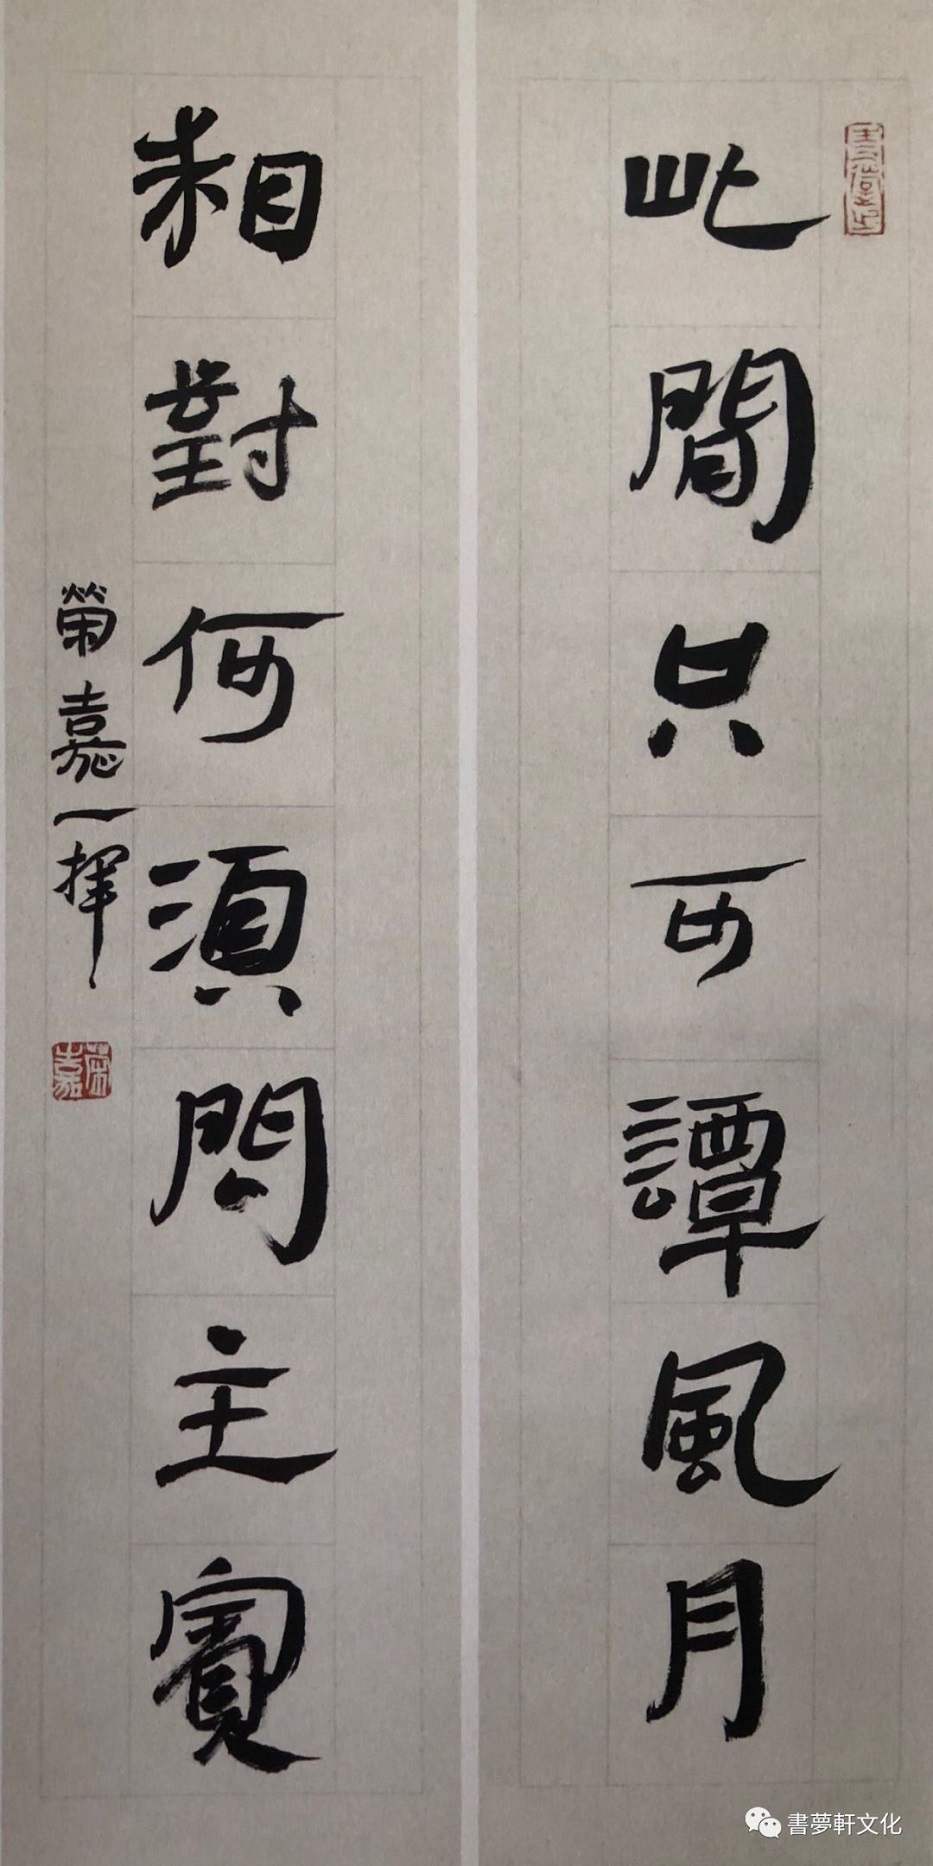 此間只可譚風月
相對何須問主賓
榮嘉一揮
榮嘉
書夢軒文化